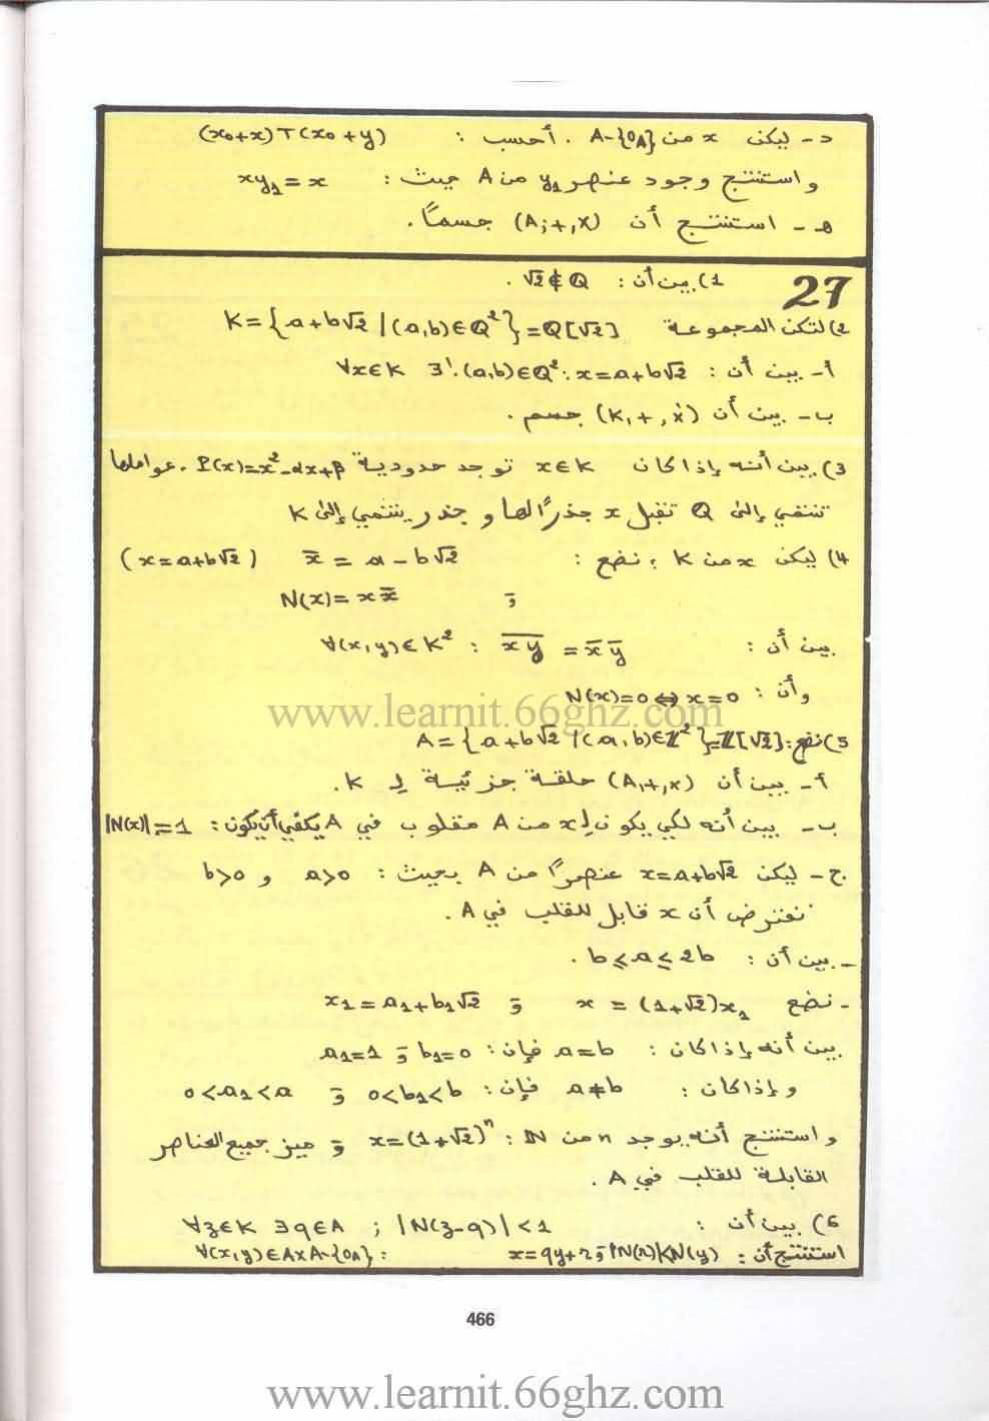 د - ليكن x من A-{0_A} . أحسب : (x₀+x)T(x₀+y)
و استنتج وجود عنصر y₁ من A حيث : xy₁=x
هـ - استنتج أن (A;+,×) جسماً.
27
1) بين أن : √2∉Q .
2) لتكن المجموعة K={a+b√2 /(a,b)∈Q²}=Q[√2]
أ - بين أن : ∀x∈K ∃!(a,b)∈Q²: x=a+b√2
ب - بين أن (K,+,×) جسم .
3) بين أنه إذا كان x∈K توجد حدودية P(x)=x²-αx+β . عواملها
تنتمي إلى Q تقبل x جذراً لها و جذر ينتمي إلى K
4) ليكن x من K ; نضع : x̄ = a-b√2 (x=a+b√2)
و N(x)=xx̄
بين أن : ∀(x,y)∈K² : \overline{xy} = x̄ȳ
وأن : N(x)=0⇔x=0
www.learnit.66ghz.com
5) نضع : A={a+b√2 /(a,b)∈Z²}=Z[√2]
أ - بين أن (A,+,×) حلقة جزئية لـ K.
ب - بين أنه لكي يكون لـ x من A مقلوب في A يكفي أن يكون : |N(x)|=1
ج - ليكن x=a+b√2 عنصراً من A بحيث : a>0 و b>0
نفترض أن x قابل للقلب في A .
- بين أن : b≤a≤2b .
- نضع x = (1+√2)x₁ و x₁=a₁+b₁√2
بين أنه إذا كان : a=b فإن : b₁=0 و a₁=1
و إذا كان : a≠b فإن : 0<b₁<b و 0<a₁<a
و استنتج أنه يوجد n من N : x=(1+√2)ⁿ و ميز جميع العناصر
القابلة للقلب في A .
6) بين أن : ∀z∈K ∃q∈A ; |N(z-q)|<1
استنتج أن : ∀(x,y)∈A×A-{0_A} : x=qy+r و |N(r)|<|N(y)|
466
www.learnit.66ghz.com